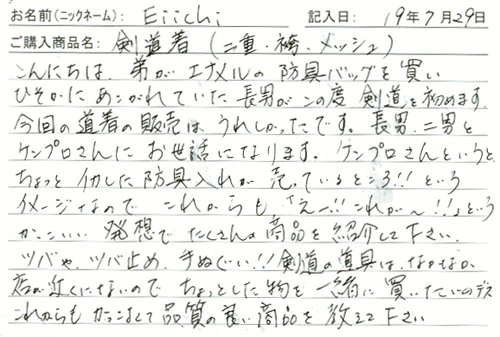 お名前(ニックネーム): Eiichi 記入日: 19年7月29日
ご購入商品名: 剣道着 (二重・袴・メッシュ)
こんにちは、弟がエナメルの防具バッグを買い
ひそかにあこがれていた長男がこの度 剣道を初めます。
今回の道着の販売は うれしかったです。長男、二男と
ケンプロさんに お世話になります。ケンプロさんというと、
ちょっと イカした防具入れが 売っているところ!! という
イメージなので これからも 「えー!! これが〜!!」という
かっこいい 発想で たくさんの商品を紹介して下さい。
ツバや、ツバ止め、手ぬぐい!! 剣道の道具は、なかなか
店が近くにないので ちょっとした物を 一緒に 買いたいのデス
これからも かっこよくて 品質の良い商品を 教えて下さい